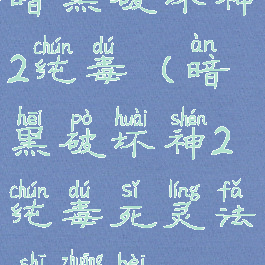 暗黑破坏神
chún dú àn
2纯毒(暗
hēi pò huài shén
黑破坏神2
chún dú sǐ líng fǎ
纯毒死灵法
shī zhuāng bèi